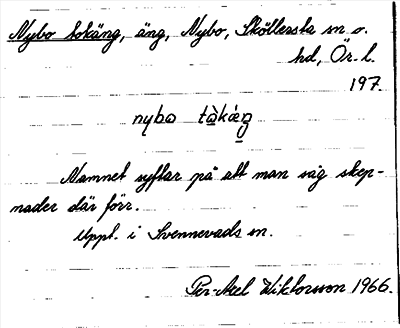 Nybo tokäng, äng, Nybo, Sköllersta sn o.
hd, Ör. l.
197.
nybo
Namnet syftar på att man såg skep-
nader där förr.
Uppt. i Svennevads sn.
Per-Axel Wiktorsson 1966.